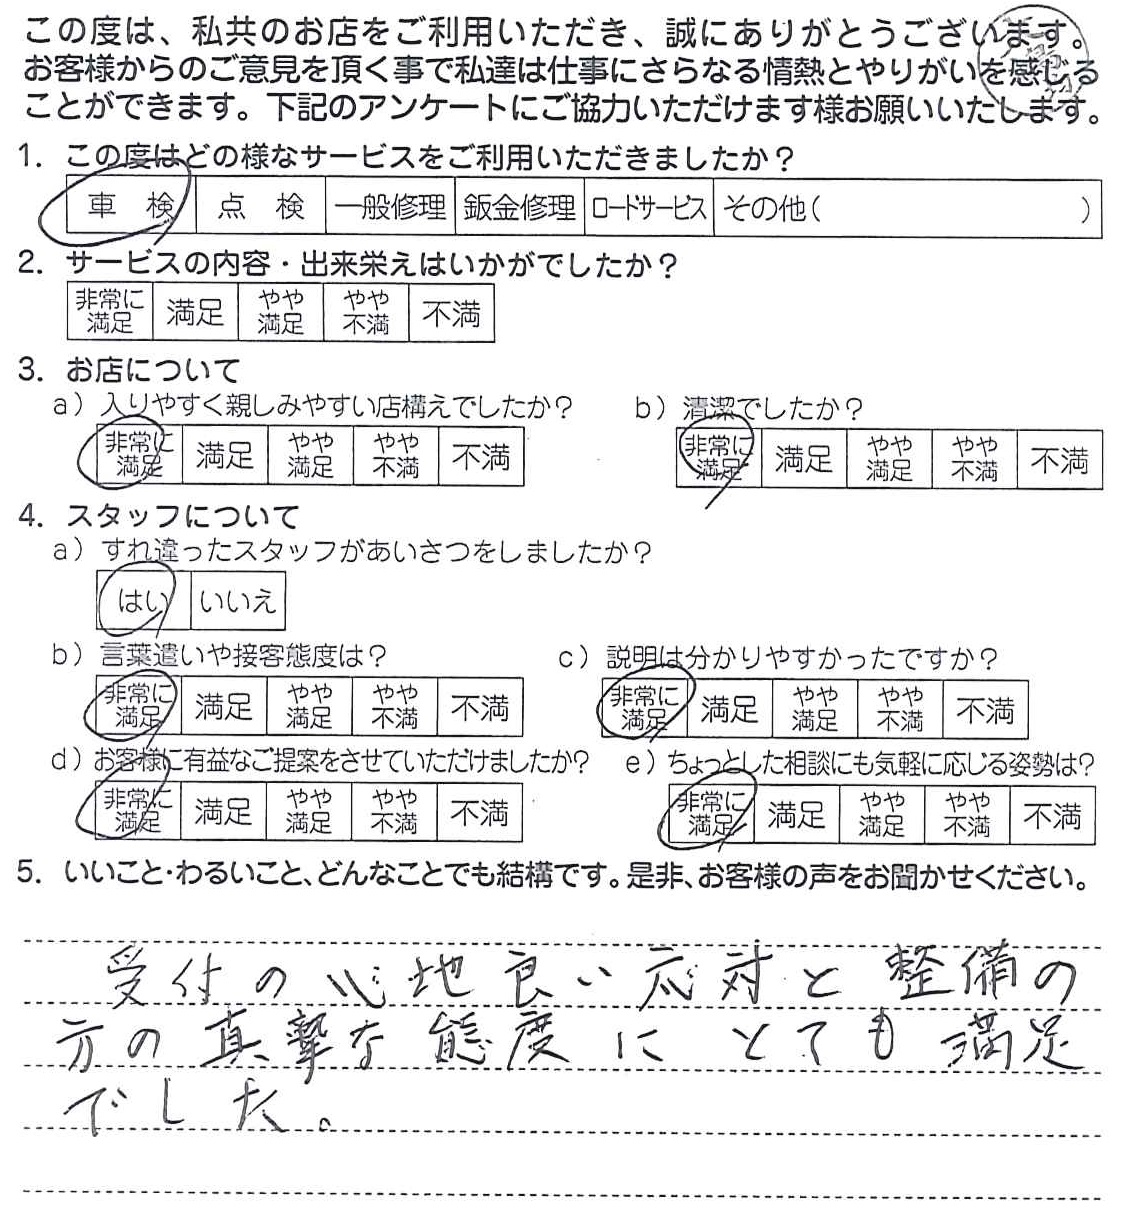 この度は、私共のお店をご利用いただき、誠にありがとうございます。
お客様からのご意見を頂く事で私達は仕事にさらなる情熱とやりがいを感じる
ことができます。下記のアンケートにご協力いただけます様お願いいたします。
1. この度はどの様なサービスをご利用いただきましたか？
車 検 点 検 一般修理 鈑金修理 ロードサービス その他( )
2. サービスの内容・出来栄えはいかがでしたか？
非常に満足 満足 やや満足 やや不満 不満
3. お店について
a）入りやすく親しみやすい店構えでしたか？ b）清潔でしたか？
非常に満足 満足 やや満足 やや不満 不満 非常に満足 満足 やや満足 やや不満 不満
4. スタッフについて
a）すれ違ったスタッフがあいさつをしましたか？
はい いいえ
b）言葉遣いや接客態度は？ c）説明は分かりやすかったですか？
非常に満足 満足 やや満足 やや不満 不満 非常に満足 満足 やや満足 やや不満 不満
d）お客様に有益なご提案をさせていただけましたか？ e）ちょっとした相談にも気軽に応じる姿勢は？
非常に満足 満足 やや満足 やや不満 不満 非常に満足 満足 やや満足 やや不満 不満
5. いいこと・わるいこと、どんなことでも結構です。是非、お客様の声をお聞かせください。
受付の心地良い応対と整備の
方の真摯な態度にとても満足
でした。